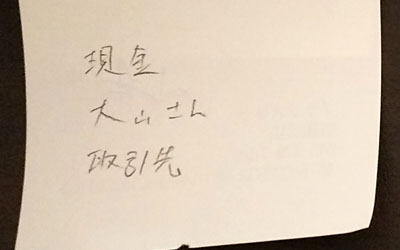 現金
大山さん
取引先